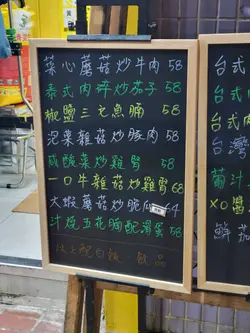 菜心蘑菇炒牛肉 58
泰式肉碎炒茄子 58
椒鹽三文魚腩 58
泥菜雜菇炒豚肉 58
咸酸菜炒雞臂 58
一口牛雜菇炒茄子 68
大蝦蘑菇炒脆瓜 64
汁燒五花腩配溫蛋 58
以上配白飯、飲品
台式
台式
台灣
葡汁
XO醬
鮮茄